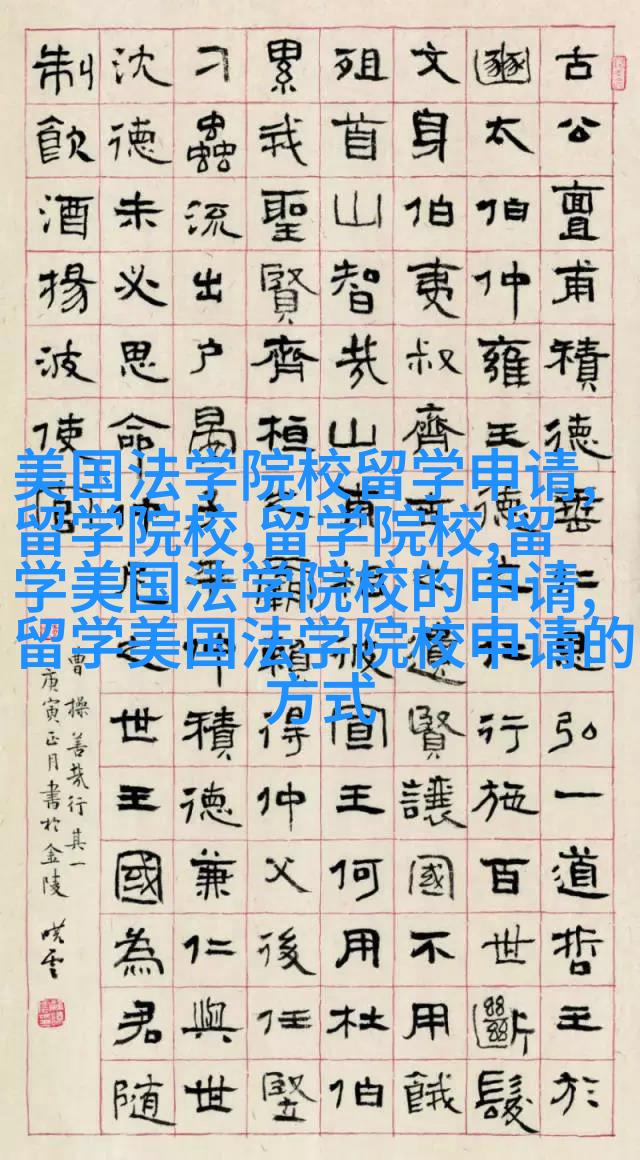 古公亶甫積德垂仁思弘一道哲王於
豳太伯仲雍王德之仁行施百世斷髮
文身伯夷叔齊古之遺賢讓國不用餓
殂首山智哉山甫相彼宣王何用杜伯
累我聖賢齊桓之霸賴得仲父後任豎
刁蟲流出戶晏子平仲積德兼仁與世
沈德未必思命仲尼之世王國為君隨
制飲酒揚波使官
曹操善哉行其一
庚寅正月書於金陵
美国法学院校留学申请,
留学院校,留学院校,留
学美国法学院校的申请,
留学美国法学院校申请的
方式